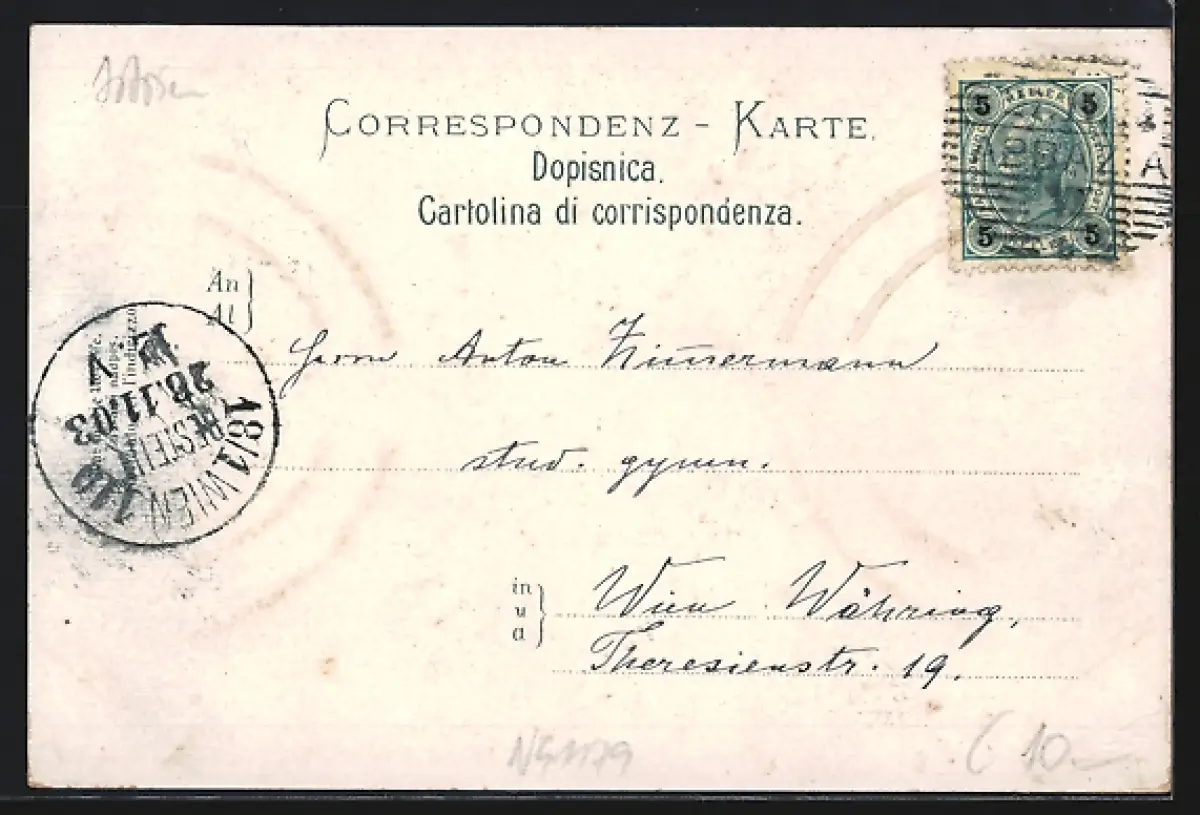 CORRESPONDENZ - KARTE.
Dopisnica.
Cartolina di corrispondenza.
5 5
5 5
ABBA A
An
Al
Herrn Anton Zimmermann
stud. gymn.
in
u
a
Wien Währing,
Theresienstr. 19.
18/1 WIEN 110
BESTELLT
28.11.03
NG1179
€ 10.-